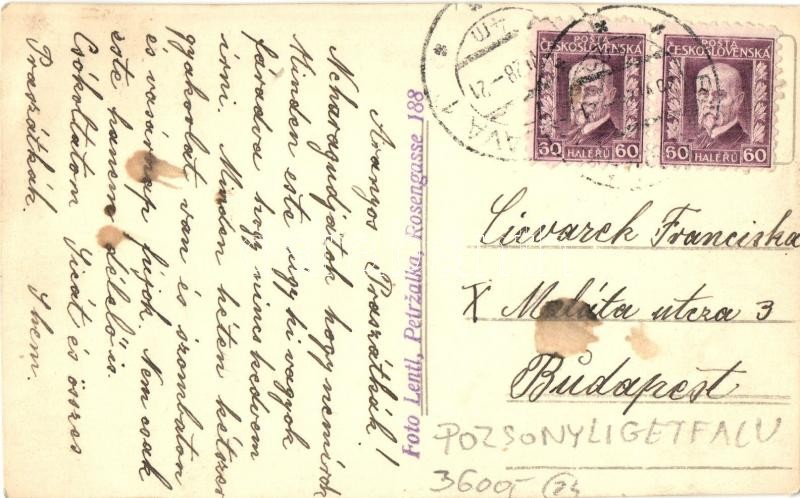 Aranyos Praszátkák!
Ne haragudjatok hogy nem írok
Minden este úgy ki vagyok
fáradva hogy nincs kedvem
írni. Minden héten kétszer
gyakorlat van és szombaton
és vasárnap fújok. Nem csak
este hanem délelő is.
Csókoltatom Sicát és összes
Praszátkák. 
Foto Lentl, Petržalka, Rosengasse 188
POSTA
ČESKOSLOVENSKÁ
60 HALÉŘŮ 60
POSTA
ČESKOSLOVENSKÁ
60 HALÉŘŮ 60
28
21
AVA 1
Cievarek Franciska
X Maláta utcza 3
Budapest
POZSONYLIGETFALU
3600,-